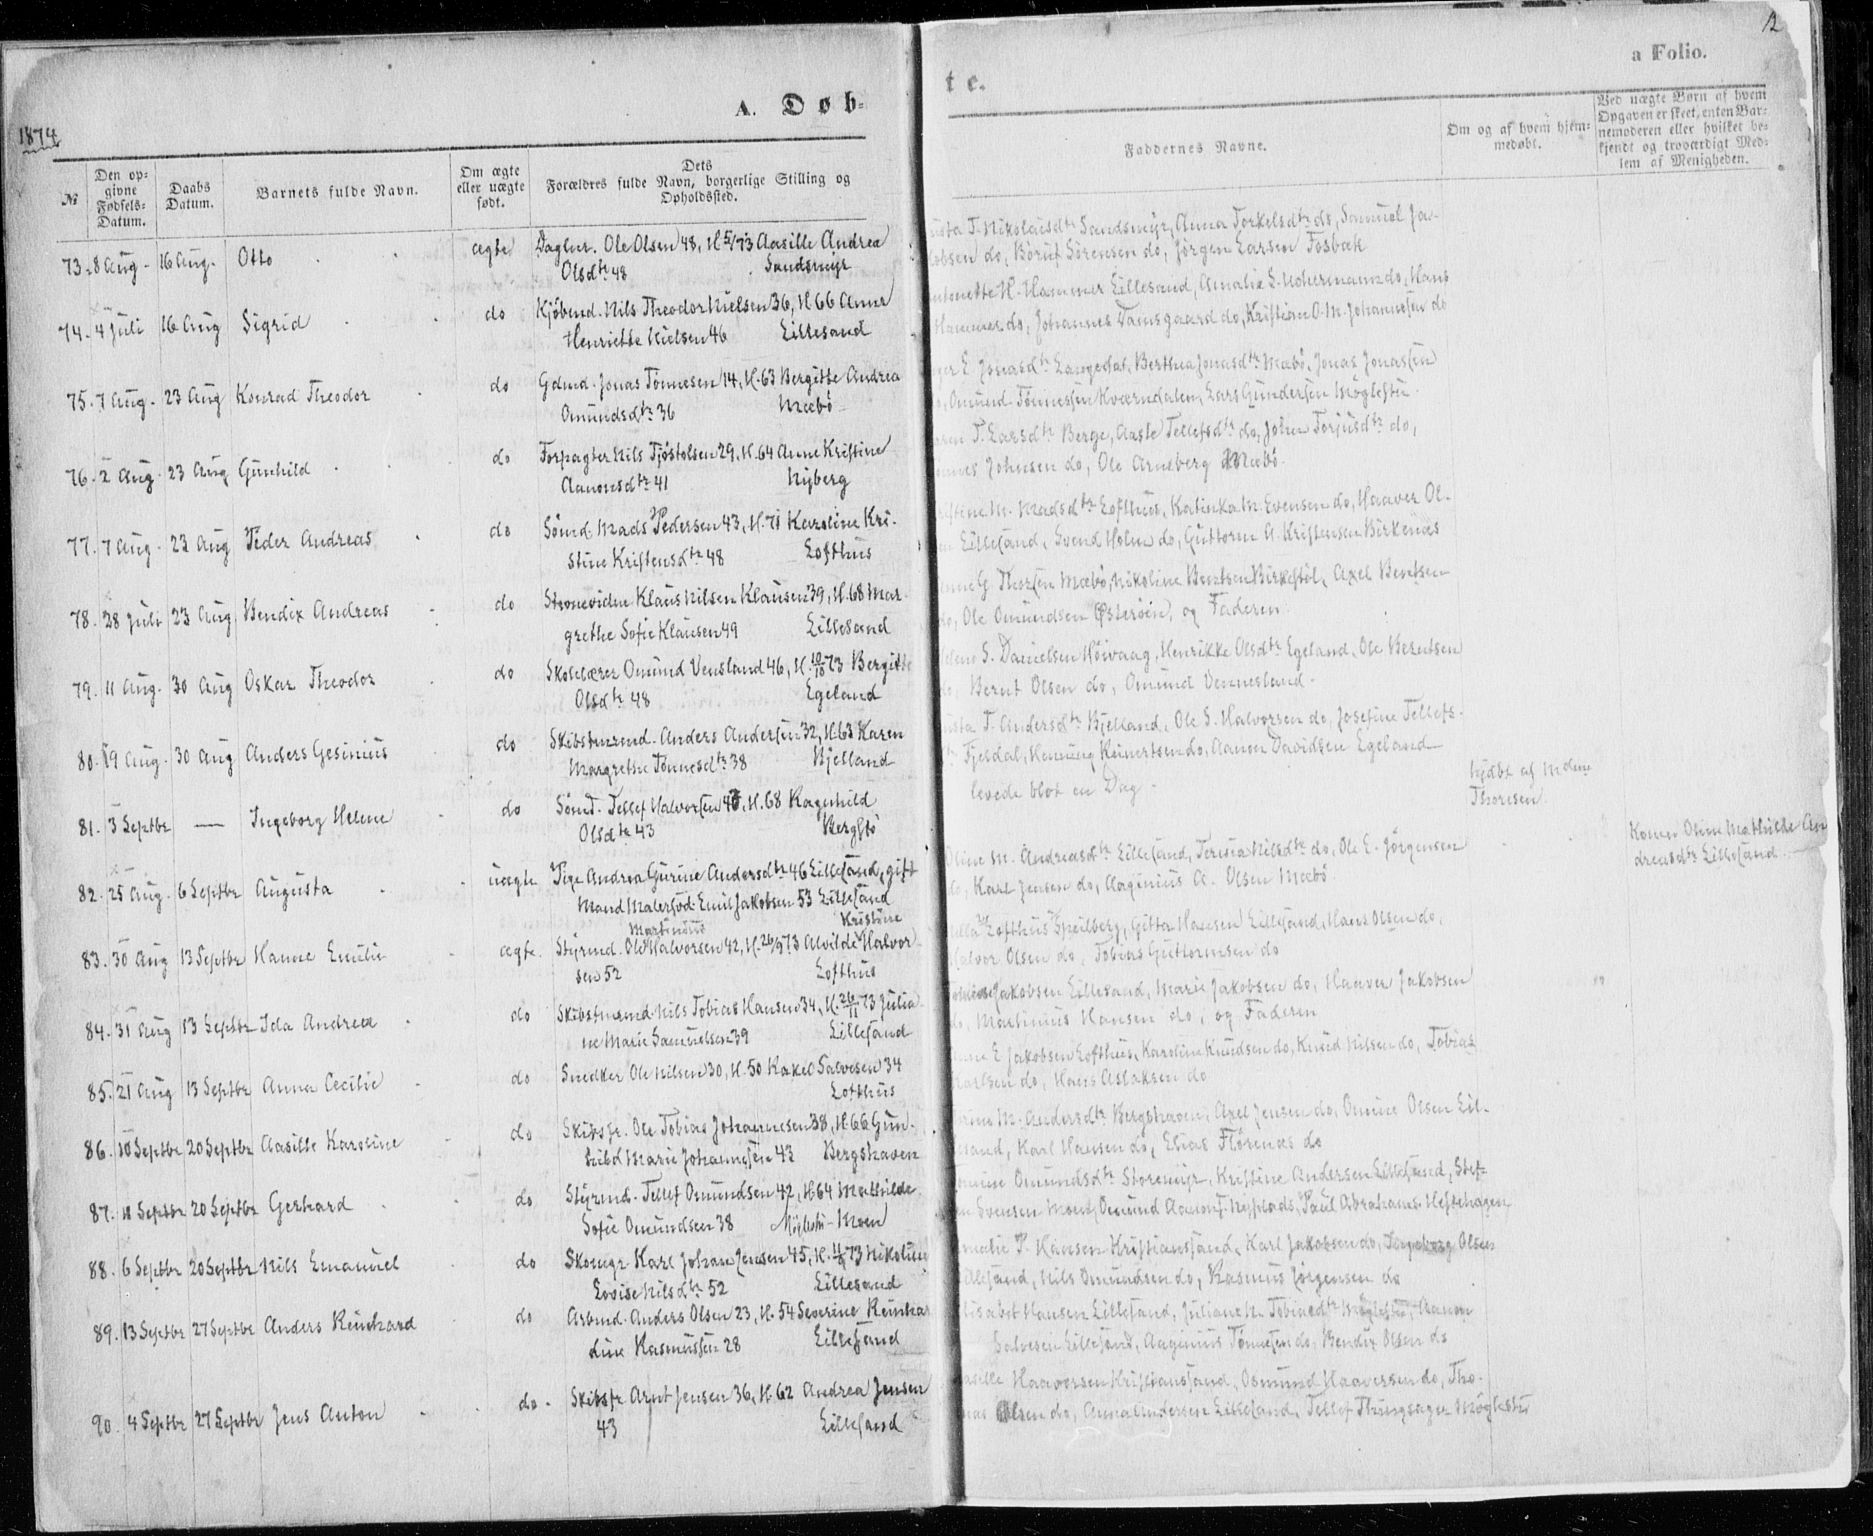 12
a Folio.
A. Døb-
te.
1874
№
Den op-
givne
Fødsels-
Datum.
Daabs
Datum.
Barnets fulde Navn.
Om ægte
eller uægte
født.
Dets
Forældres fulde Navn, borgerlige Stilling og
Opholdssted.
Faddernes Navne.
Om og af hvem hjem-
medøbt.
Ved uægte Børn af hvem
Opgaven er skeet, enten Bar-
nemoderen eller hvilket be-
kjendt og troværdigt Med-
lem af Menigheden.
73. 8 Aug. 16 Aug. Otto ægte Daglnr. Ole Olsen 48, H 5/73 Aasille Andrea
Olsdtr 48 Sandsmyr
T. Nikolaisdtr Sandsmyr, Anna Torkelsdtr do, Samuel Ja-
kobsen do, Børut Sørensen do, Jørgen Larsen Fosbæk
74. 4 Juli 16 Aug Sigrid do Kjøbmd. Nils Theodor Nielsen 36, H 66 Anne
Henriette Nielsen 46 Lillesand
H. Hammer Lillesand, Amalie S. Uchermann do, Hans
Hammer do, Johannes Damsgaard do, Kristian O. M. Johannesen do
75. 7 Aug. 23 Aug Konrad Theodor do Gdmd. Jonas Tønnesen 14, H. 63 Bergitte Andrea
Omundsdtr 36 Mæbø
E Jonasdtr Langedal, Berthea Jonasdtr Mæbø, Jonas Jonassen
Omund Tønnessen Kværndalen, Lars Gundersen Møglestu
76. 2 Aug. 23 Aug Gunhild do Forpagter Nils Tjøstolsen 29, H. 64 Anne Kristine
Aanonsdtr 41 Nyberg
T. Larsdtr Berge, Aaste Tellefsdtr do, John Torjusdtr do,
Johnsen do, Ole Arneberg Mæbø
77. 7 Aug. 23 Aug Peder Andreas do Sømd. Mads Pedersen 43, H. 71 Karoline Kri-
stine Kristensdtr 48 Lofthus
M. Madsdtr Lofthus, Katinka M. Evensen do, Haaver Ol-
Lillesand, Svend Holm do, Guttorm A. Kristensen Birkenæs
78. 28 Juli 23 Aug Bendix Andreas do Klaus Nilsen Klausen 39, H. 68 Mar-
grethe Sofie Klausen 49 Lillesand
G. Thorsen Mæbø, Nikoline Berntsen Birkestøl, Axel Berntsen
do, Ole Omundsen Østerøen, og Faderen
79. 11 Aug. 30 Aug Oskar Theodor do Skolelærer Omund Vensland 46, H. 10/10 73 Bergitte
Olsdtr 48 Egeland
S. Danielsen Høivaag, Henrikke Olsdtr Egeland, Ole Berntsen
Bernt Olsen do, Omund Vennesland
80. 19 Aug. 30 Aug Anders Gesinius do Skibstmrmd. Anders Andersen 32, H. 63 Karen
Margrethe Tønnesdtr 38 Bjelland
T. Andersdtr Bjelland, Ole S. Halvorsen do, Josefine Tellefs-
Fjeldal, Henning Reinertsen do, Aanon Davidsen Egeland
81. 3 Septbr — Ingeborg Helene do Sømd. Tellef Halvorsen 40, H. 68 Ragnhild
Olsdtr 43 Bergstø
levede blot en Dag
hjdbt af Mdme
Thoresen
82. 25 Aug. 6 Septbr Augusta uægte Pige Andrea Gurine Andersdtr 46 Lillesand, gift
Mand Malersvd. Emil Jakobsen 53 Lillesand
M. Andreasdtr Lillesand, Teresia Nilsdtr do, Ole E. Jørgensen
do, Karl Jensen do, Aaginius A. Olsen Mæbø
Konen Oline Mathilde An
dreasdtr Lillesand
83. 30 Aug 13 Septbr Hanne Emilie ægte Styrmd. Ole Martinius Halvorsen 42, H. 26/9 73 Alvilde Kristine Halvor-
sen 52 Lofthus
Lofthus Speilberg, Gitta Hansen Lillesand, Hans Olsen do,
Halvor Olsen do, Tobias Guttormsen do
84. 31 Aug 13 Septbr Ida Andrea do Skibstmrmd Nils Tobias Hansen 34, H. 26/11 73 Julia-
ne Marie Samuelsen 39 Lillesand
Jakobsen Lillesand, Marie Jakobsen do, Haaver Jakobsen
do, Martinius Hansen do, og Faderen
85. 21 Aug 13 Septbr Anna Cecilie do Snedker Ole Nilsen 30, H. 50 Rakel Salvesen 34
Lofthus
E Jakobsen Lofthus, Karoline Knudsen do, Knud Nilsen do, Tobias
Karlsen do, Hans Aslaksen do
86. 10 Septbr 20 Septbr Aasille Karoline do Skibsfr. Ole Tobias Johannesen 38, H 66 Gun-
hild Marie Johannesen 43 Bergshaven
M. Andersdtr Bergshaven, Axel Jensen do, Omine Olsen Lil-
lesand, Karl Hansen do, Elias Flørenæs do
87. 11 Septbr 20 Septbr Gerhard do Styrmd. Tellef Omundsen 42, H 64 Mathilde
Sofie Omundsen 38 Møglestu-Moen
Omundsdtr Storemyr, Kristine Andersen Lillesand, Stef-
Svensen Moen, Omund Aanons. Nyplads, Paul Abrahams. Heftehagen
88. 6 Septbr 20 Septbr Nils Emanuel do Skomgr. Karl Johan Jensen 45, H. 11/4 73 Nikoline
Lovise Nilsdtr 52 Lillesand
P. Hansen Kristianssand, Karl Jakobsen do, Ingeborg Olsen
Lillesand, Nils Omundsen do, Rasmus Jørgensen do
89. 13 Septbr 27 Septbr Anders Reinhard do Arbmd. Anders Olsen 23, H. 54 Severine Reinhar-
dine Rasmussen 28 Lillesand
Elisabet Hansen Lillesand, Juliane N. Tobiasdtr Møglestu, Aanon
Salvesen Lillesand, Aaginius Tønnesen do, Bendix Olsen do
90. 4 Septbr 27 Septbr Jens Anton do Skibsfr Arnt Jensen 36, H. 62 Andrea Jensen
43 Lillesand
Haaversen Kristianssand, Osmund Haaversen do, Tho-
mas Olsen do, Anna Andersen Lillesand, Tellef Thingsager Møglestu